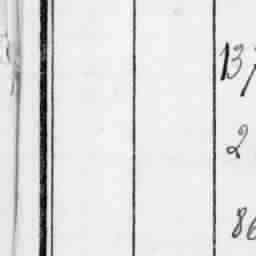 137
2
86